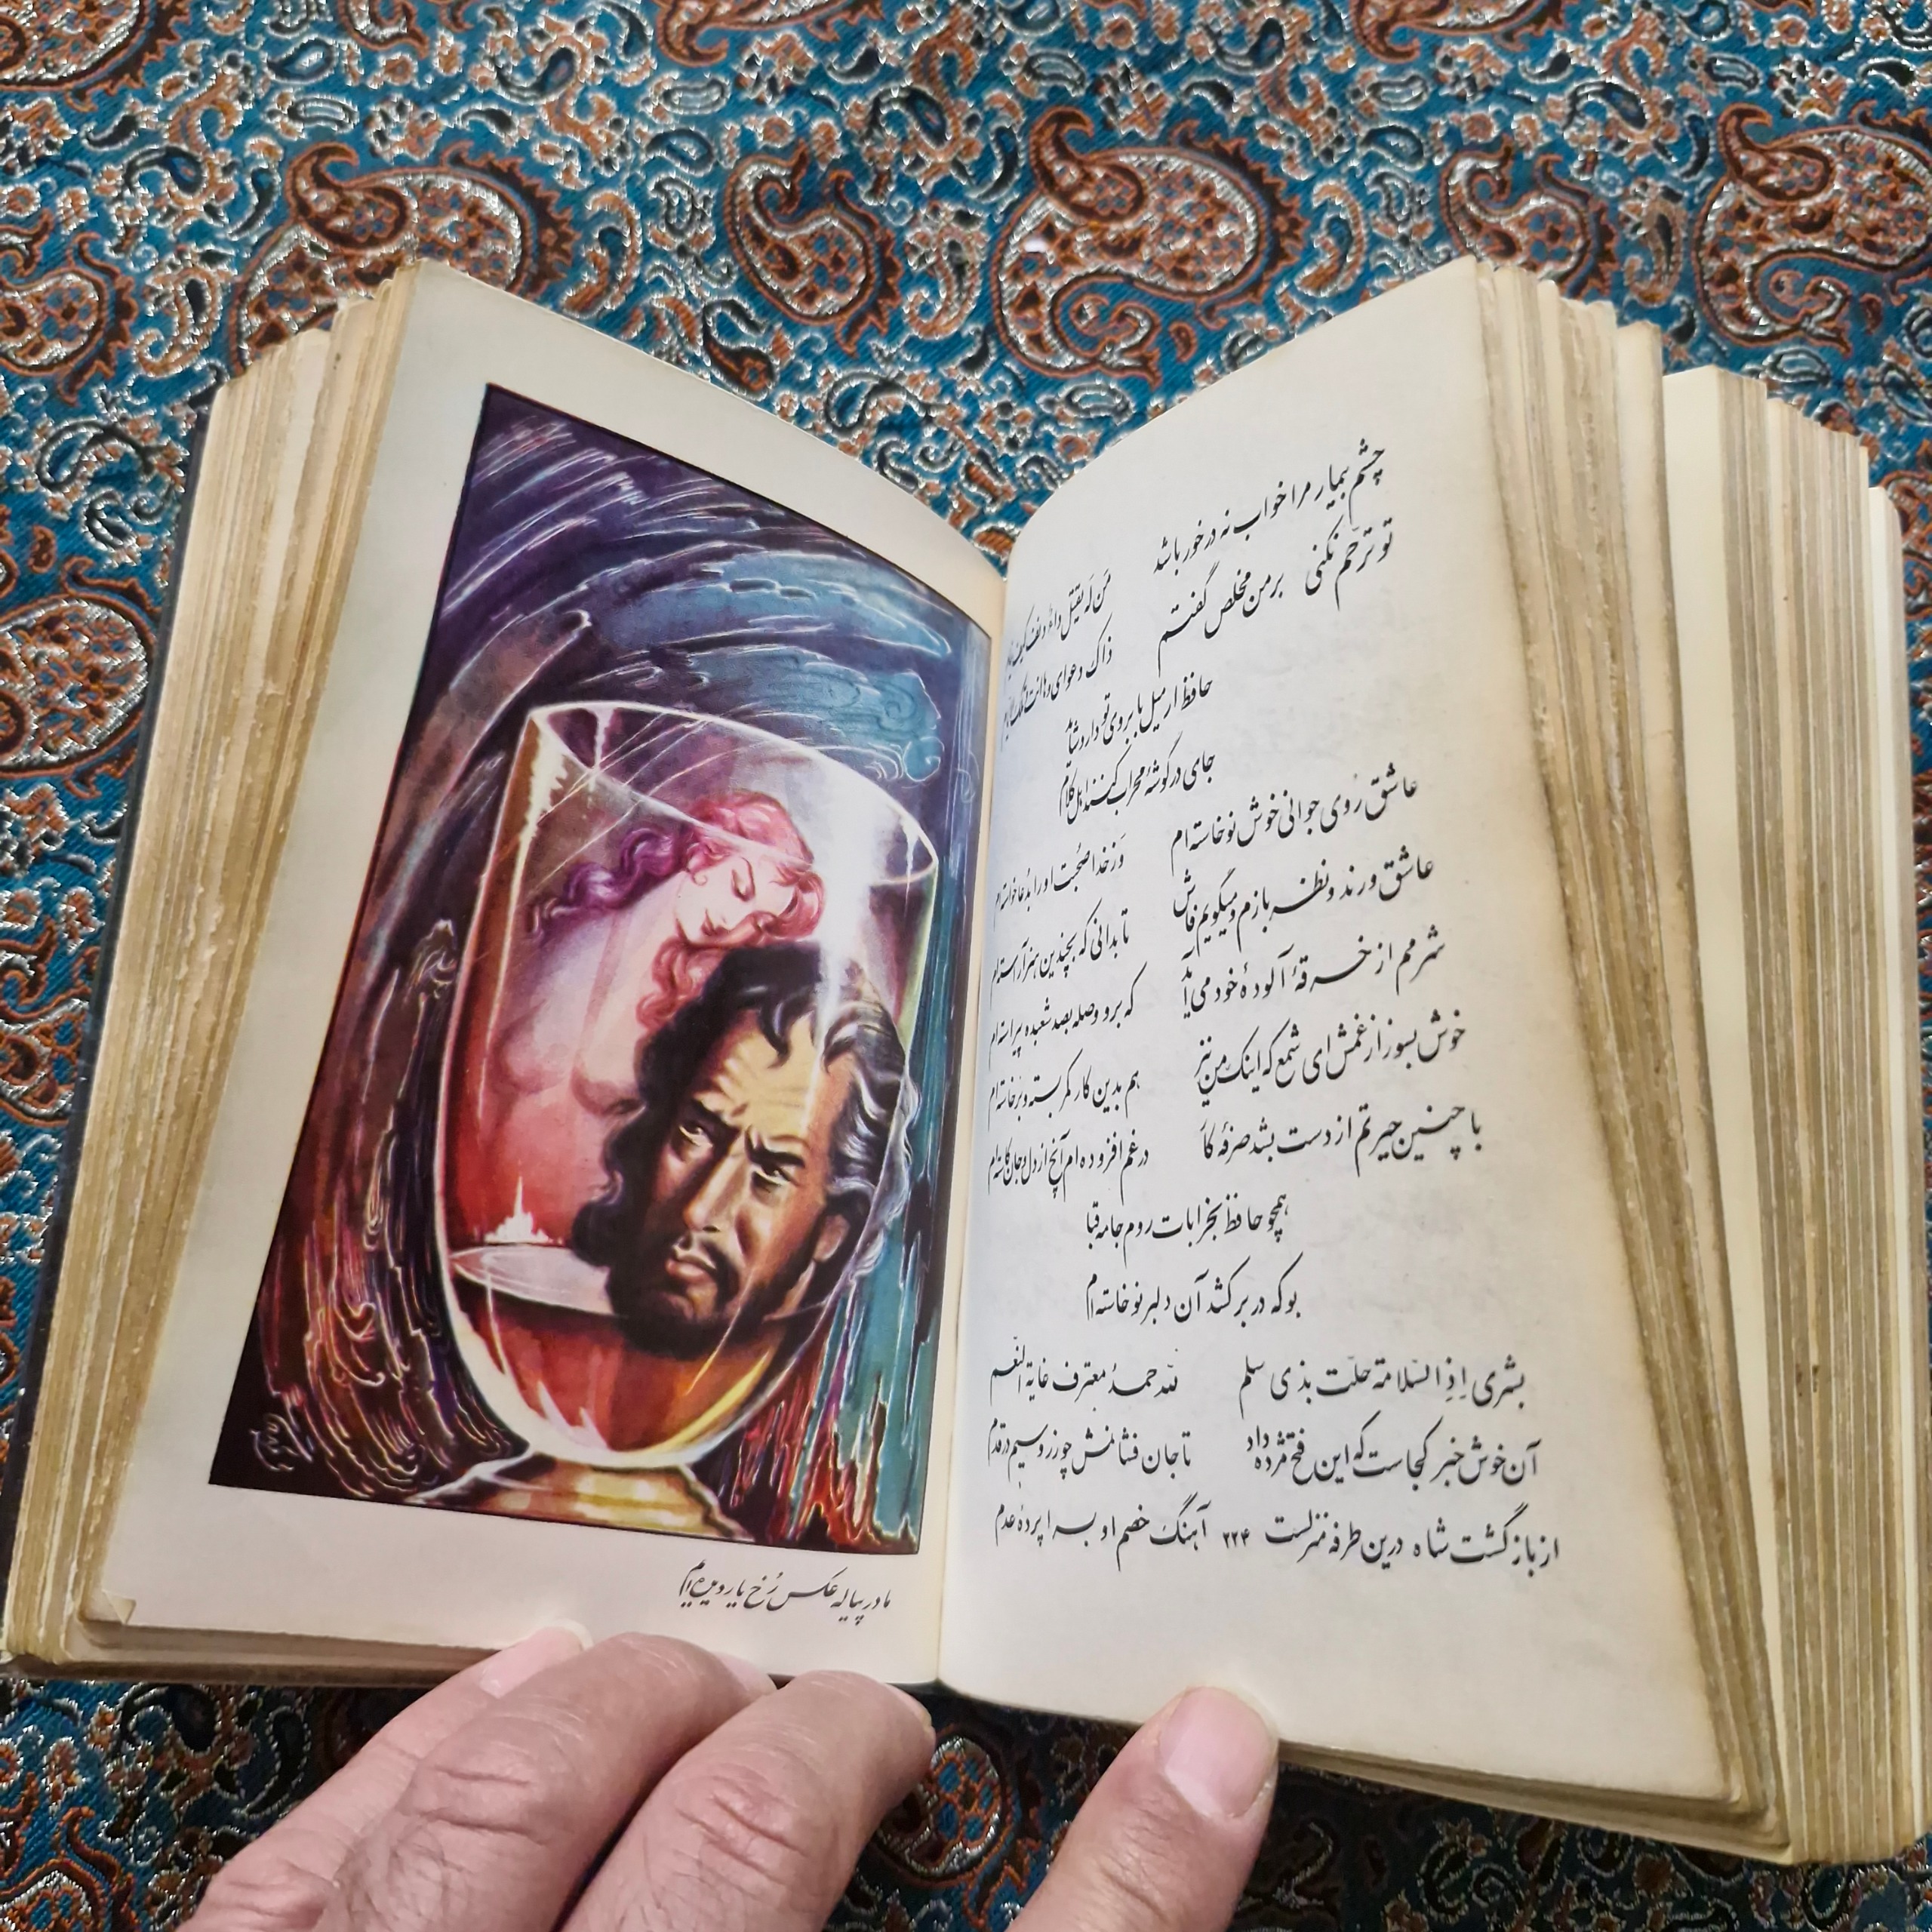 چشم بیمار مرا خواب نه درخور باشد مَن لَه یقتل داءُ دنف کیف ینام
تو ترحم نکنی بر من مخلص گفتم ذاک دعوای وها انت و تلک الایام
حافظ ار میل بابروی تو دارد شاید
جای در گوشهٔ محراب کنند اهل کلام
عاشق روی جوانی خوش نوخاسته ام وَز خدا صحبت او را بدُعا خواسته ام
عاشق و رند و نظربازم و میگویم فاش تا بدانی که بچندین هنر آراسته ام
شرمم از خرقهٔ آلودهٔ خود می آید که برو وصله بصد شعبده پیراسته ام
خوش بسوز از غمش ای شمع که اینک من نیز هم بدین کار کمر بسته و برخاسته ام
با چنین حیرتم از دست بشد صرفهٔ کار در غم افزوده ام آنچ از دل و جان کاسته ام
همچو حافظ بخرابات روم جامه قبا
بو که در بر کشد آن دلبر نوخاسته ام
بشری اِذِ السّلامة حلّت بذی سلم للّه حمدُ معترف غایة النّعم
آن خوش خبر کجاست که این فتح مژده داد تا جان فشانمش چو زر و سیم در قدم
از بازگشت شاه درین طرفه منزلست ۲۲۴ آهنگ خصم او بسراپردهٔ عدم
ما در پیاله عکس رُخ یار دیده ایم